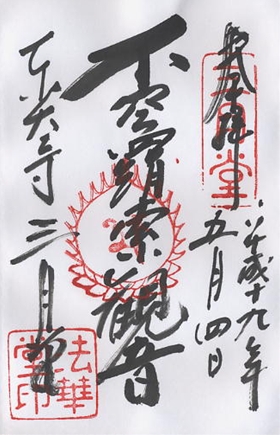 奉拝
三月堂
平成十九年
五月四日
不空羂索観音
東大寺 三月堂
法華
堂印